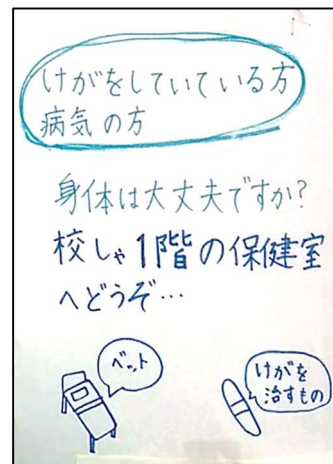 けがをしていている方
病気の方
身体は大丈夫ですか?
校しゃ1階の保健室
へどうぞ…
ベット
けがを
治すもの